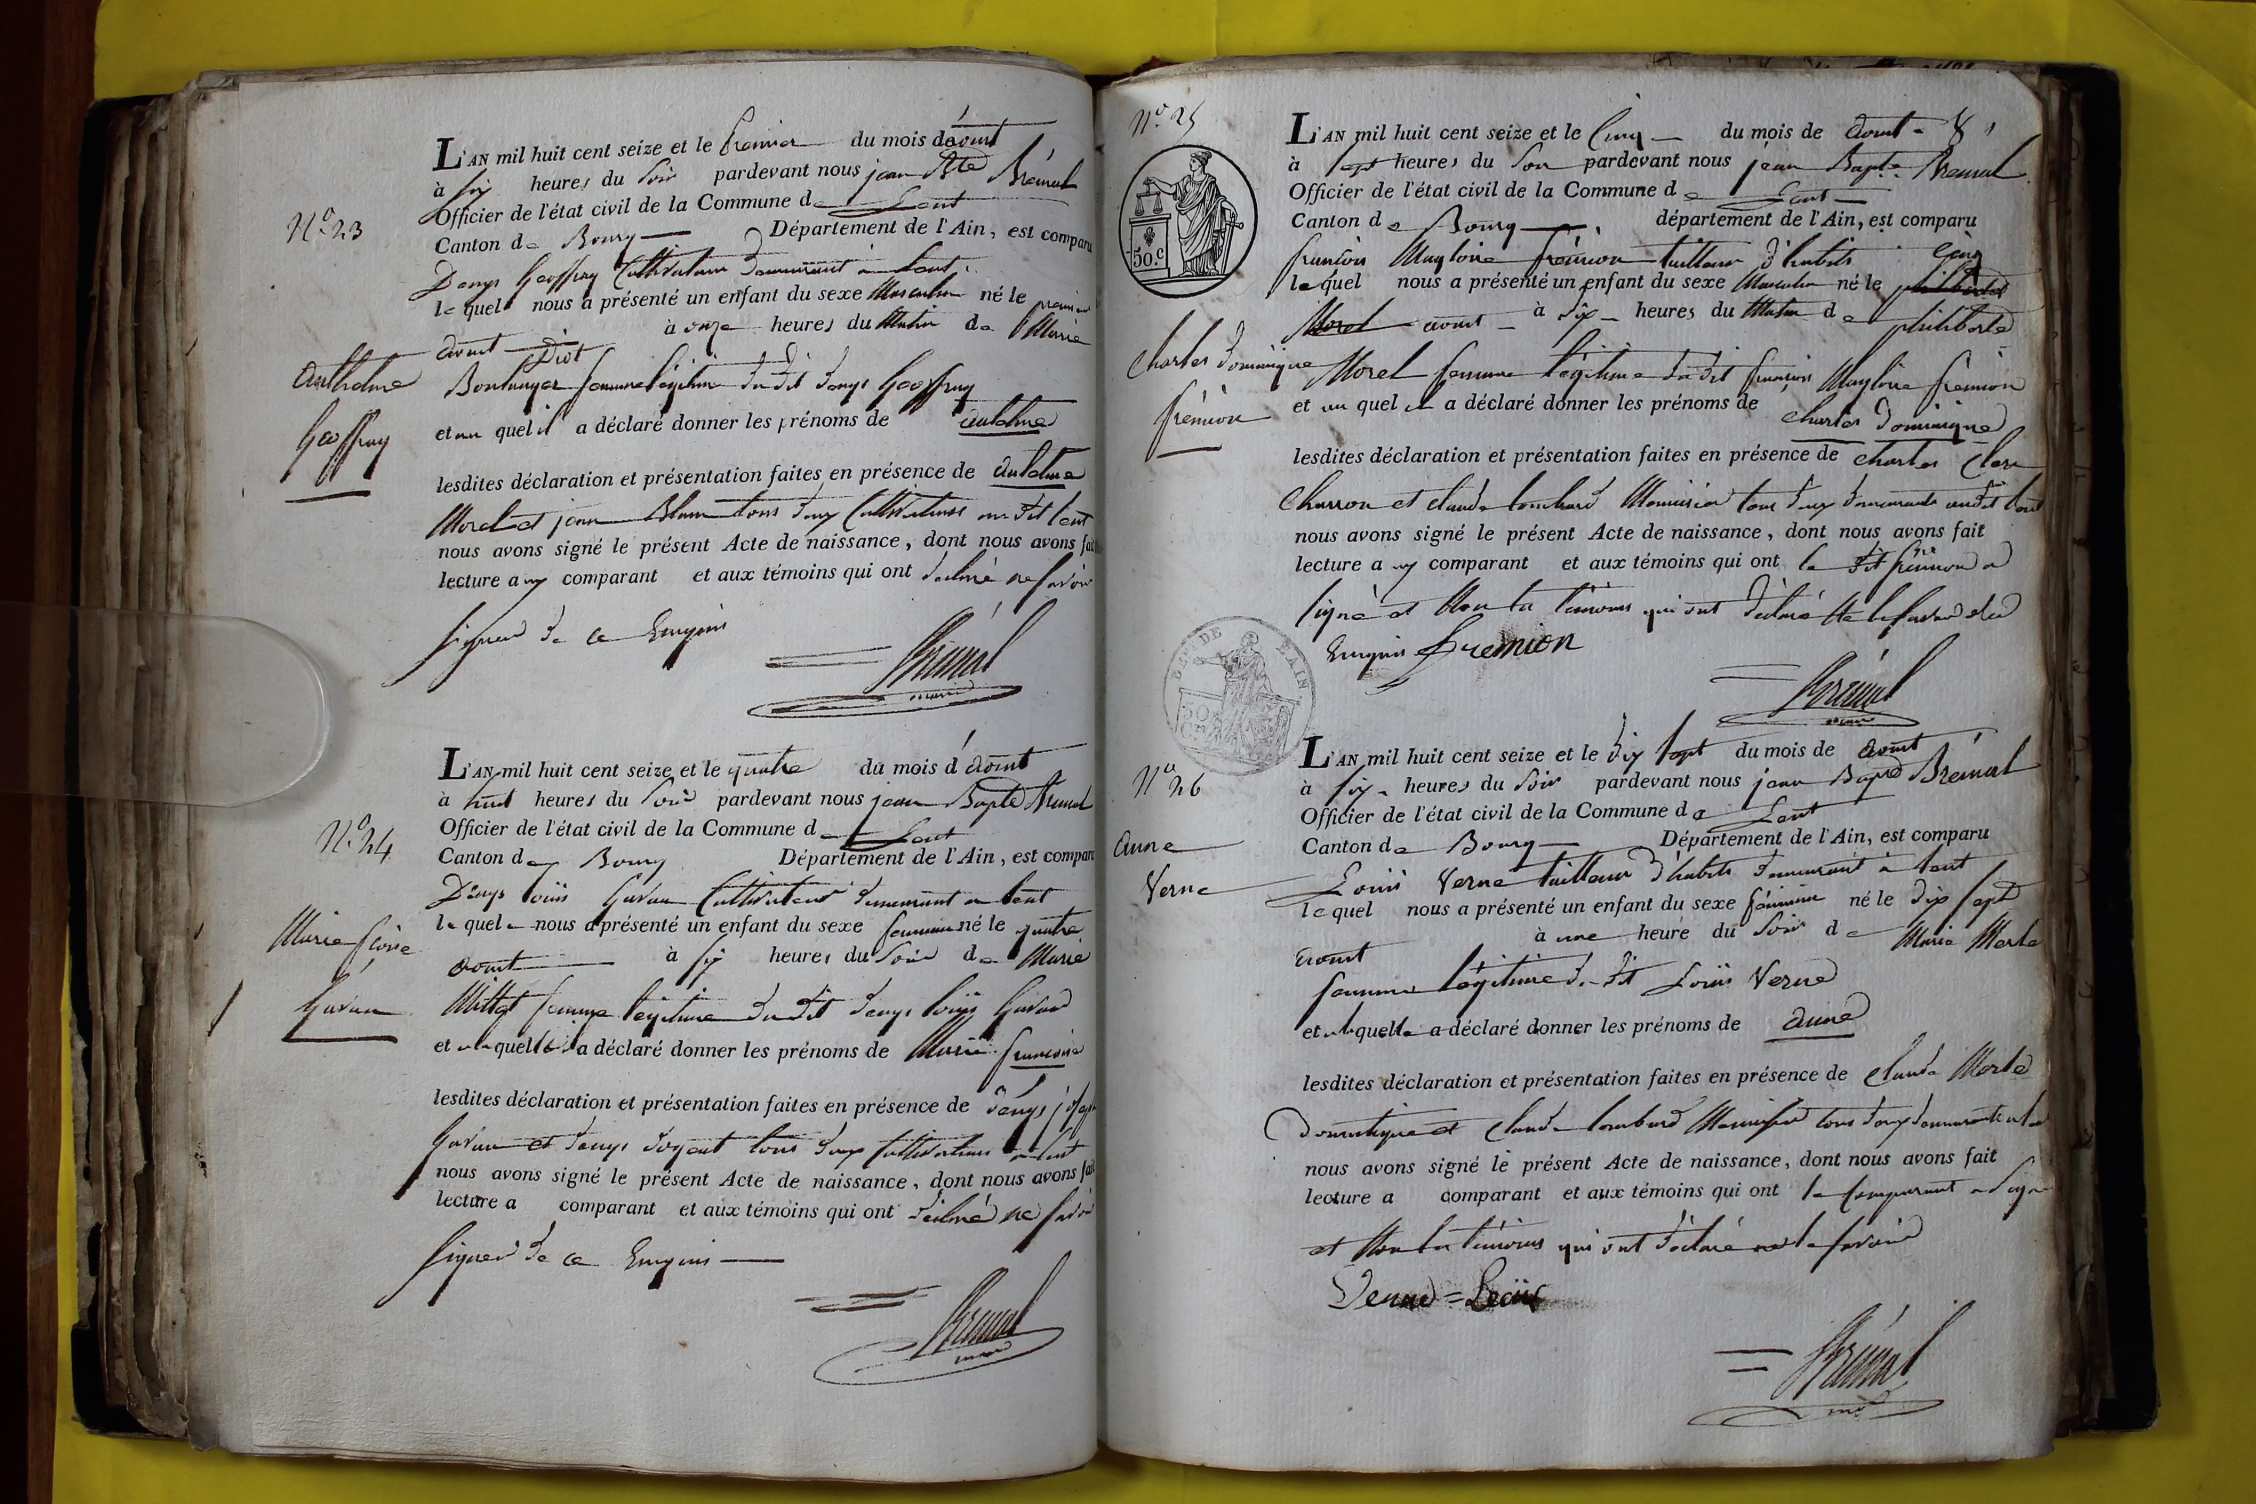 N.o 23
L'AN mil huit cent seize et le premier du mois d'aout
à six heures du soir pardevant nous jean Bte Brémal
Officier de l'état civil de la Commune de Lent
Canton de Bourg Département de l'Ain, est comparu
Denys Geoffray Cultivateur demeurant à Lent
lequel nous a présenté un enfant du sexe Masculin né le premier
aout à onze heures du Matin de Marie
Boulanger femme légitime du dit denys Geoffray
et auquel il a déclaré donner les prénoms de
lesdites déclaration et présentation faites en présence de
Morel et jean tous deux Cultivateurs au dit Lent
nous avons signé le présent Acte de naissance, dont nous avons fait
lecture au comparant et aux témoins qui ont déclaré ne savoir
signer de ce Enquis
Brémal
maire
Geoffray
N.o 24
L'AN mil huit cent seize et le quatre du mois d'aout
à huit heures du soir pardevant nous jean Bapte Brémal
Officier de l'état civil de la Commune de Lent
Canton de Bourg Département de l'Ain, est comparu
Denys Louis Cultivateur demeurant a Lent
lequel nous a présenté un enfant du sexe feminin né le quatre
aout à six heures du soir de Marie
femme légitime du dit denys Louis
et a laquelle il a déclaré donner les prénoms de Marie françoise
lesdites déclaration et présentation faites en présence de denys joseph
et denys tous deux Cultivateurs a Lent
nous avons signé le présent Acte de naissance, dont nous avons fait
lecture a comparant et aux témoins qui ont déclaré ne savoir
signer de ce Enquis
Brémal
maire
N.o 25
50.c
L'AN mil huit cent seize et le Cinq du mois de aout
à sept heures du soir pardevant nous jean Bapte Bremal
Officier de l'état civil de la Commune de Lent
Canton de Bourg département de l'Ain, est comparu
françois Magloire frémion tailleur d'habits Cinq
lequel nous a présenté un enfant du sexe Masculin né le philiberte
Morel aout à dix heures du Matin de philiberte
Morel femme légitime du dit françois Magloire frémion
et auquel il a déclaré donner les prénoms de Charles dominique
lesdites déclaration et présentation faites en présence de Charles
Charron et claude Menuisier tous deux demeurants audit Lent
nous avons signé le présent Acte de naissance, dont nous avons fait
lecture au comparant et aux témoins qui ont le dit frémion a
signé et Non les témoins qui ont déclaré Ne le savoir de ce
Enquis fremion
Brémal
maire
Charles dominique
frémion
DEPT. DE L'AIN
N.o 26
L'AN mil huit cent seize et le dix sept du mois de aout
à six heures du soir pardevant nous jean Bapte Brémal
Officier de l'état civil de la Commune de Lent
Canton de Bourg Département de l'Ain, est comparu
Louis Verne tailleur d'habits demeurant à Lent
lequel nous a présenté un enfant du sexe féminin né le dix sept
aout à une heure du soir de Marie Merle
femme légitime du dit Louis Verne
et a laquelle a déclaré donner les prénoms de anne
lesdites déclaration et présentation faites en présence de claude Merle
Domestique et claude Menuisier tous deux demeurants a Lent
nous avons signé le présent Acte de naissance, dont nous avons fait
lecture a comparant et aux témoins qui ont le comparant a signé
et Non les témoins qui ont déclaré ne le savoir
Brémal
anne
Verne